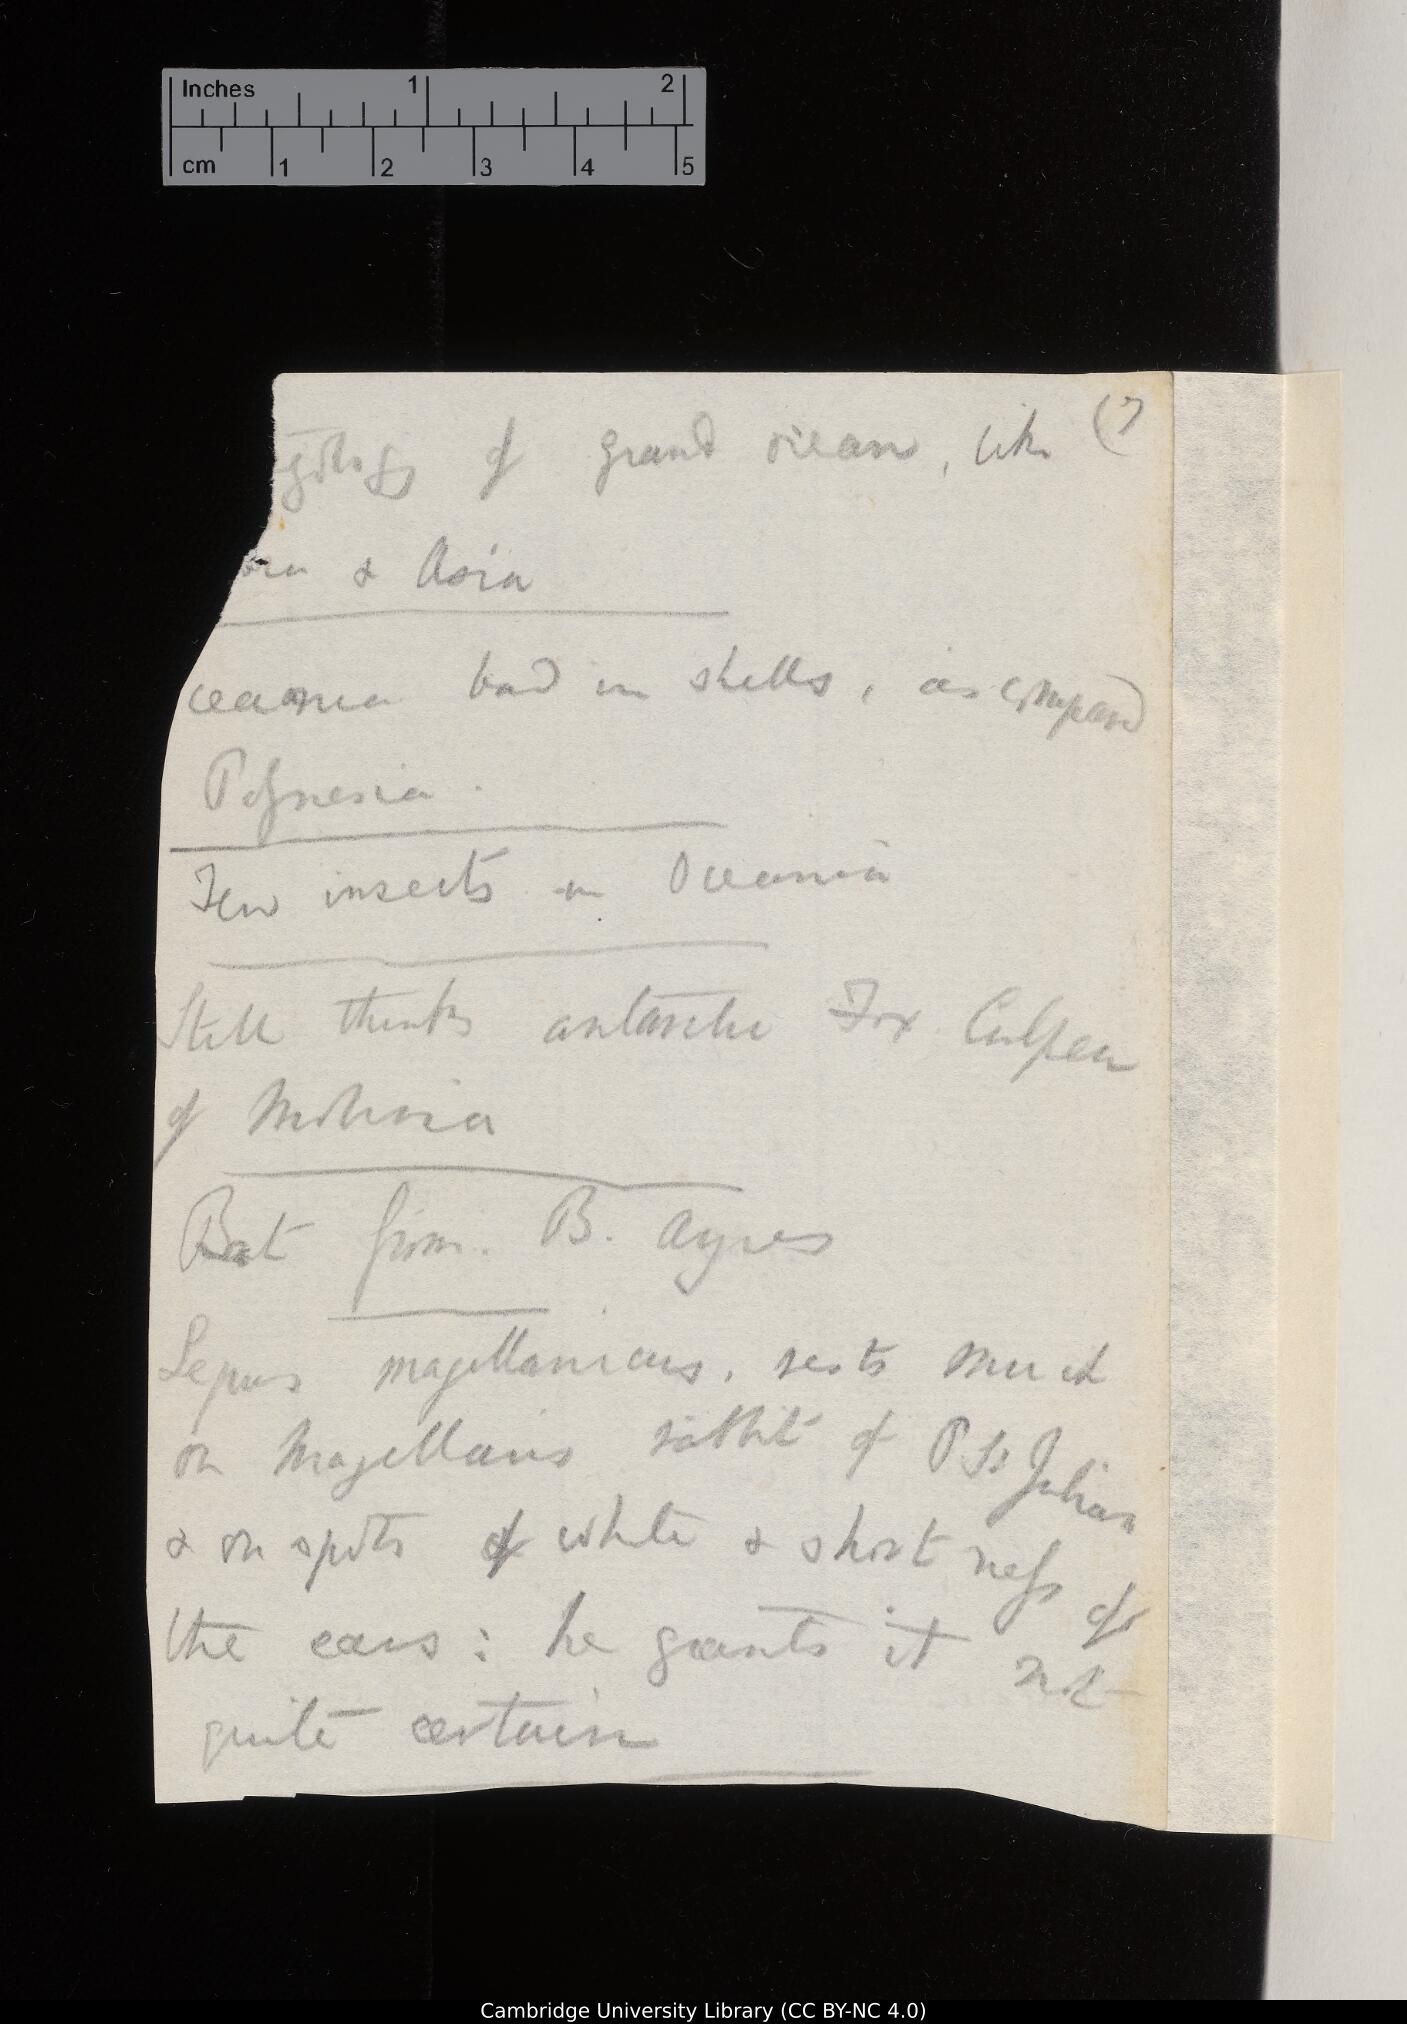 Inches 1 2
cm 1 2 3 4 5
(7
of grand ocean, like
& Asia
ceania bad in shells, as compared
Polynesia.
Few insects in Oceania
Still thinks antarctic Fox Culpeu
of Molina
Bat from. B. Ayres
Lepus magellanicus, rests much
on Magellans rabbit of P. St Julian
& on spots of white & shortness of
the ears: he grants it not
quite certain
Cambridge University Library (CC BY-NC 4.0)